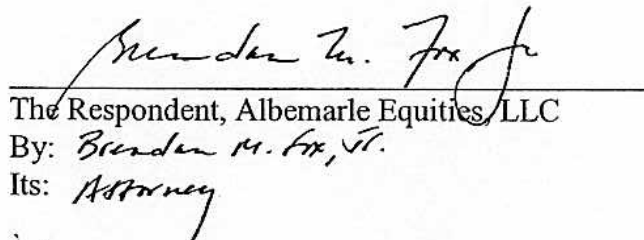 Brendan M. Fox Jr
The Respondent, Albemarle Equities, LLC
By: Brendan M. Fox, Jr.
Its: Attorney